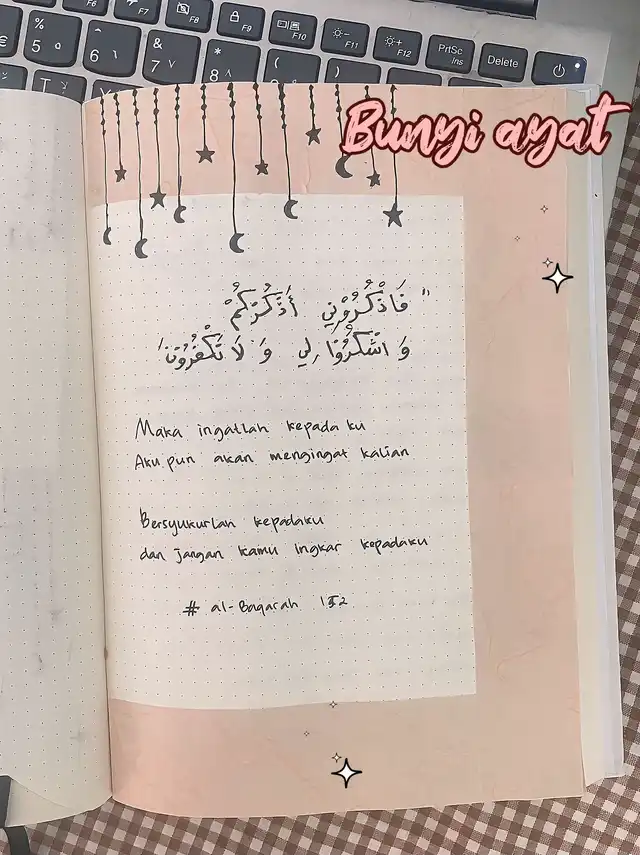 € % 5 ٥ ^ 6 ٦ & 7 ٧ * 8 ٨ ( )
F7 F8 F9 F10 F11 F12 PrtSc Ins Delete
T Y
Bunyi ayat
" فَاذْكُرُوْنِي أَذْكُرْكُمْ
وَ اشْكُرُوْا لِي وَ لَا تَكْفُرُوْنَ "
Maka ingatlah kepada ku
Aku pun akan mengingat kalian
Bersyukurlah kepadaku
dan jangan kamu ingkar kepadaku
# al-Baqarah 152